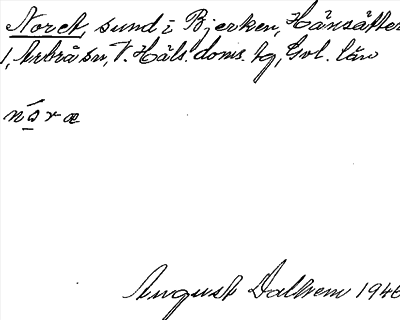 Noret, sund i Bjerken, Hänsätter
1, Arbrå sn, V. Häls. doms. tg, Gvl. län
nóra
August Dalhem 1946